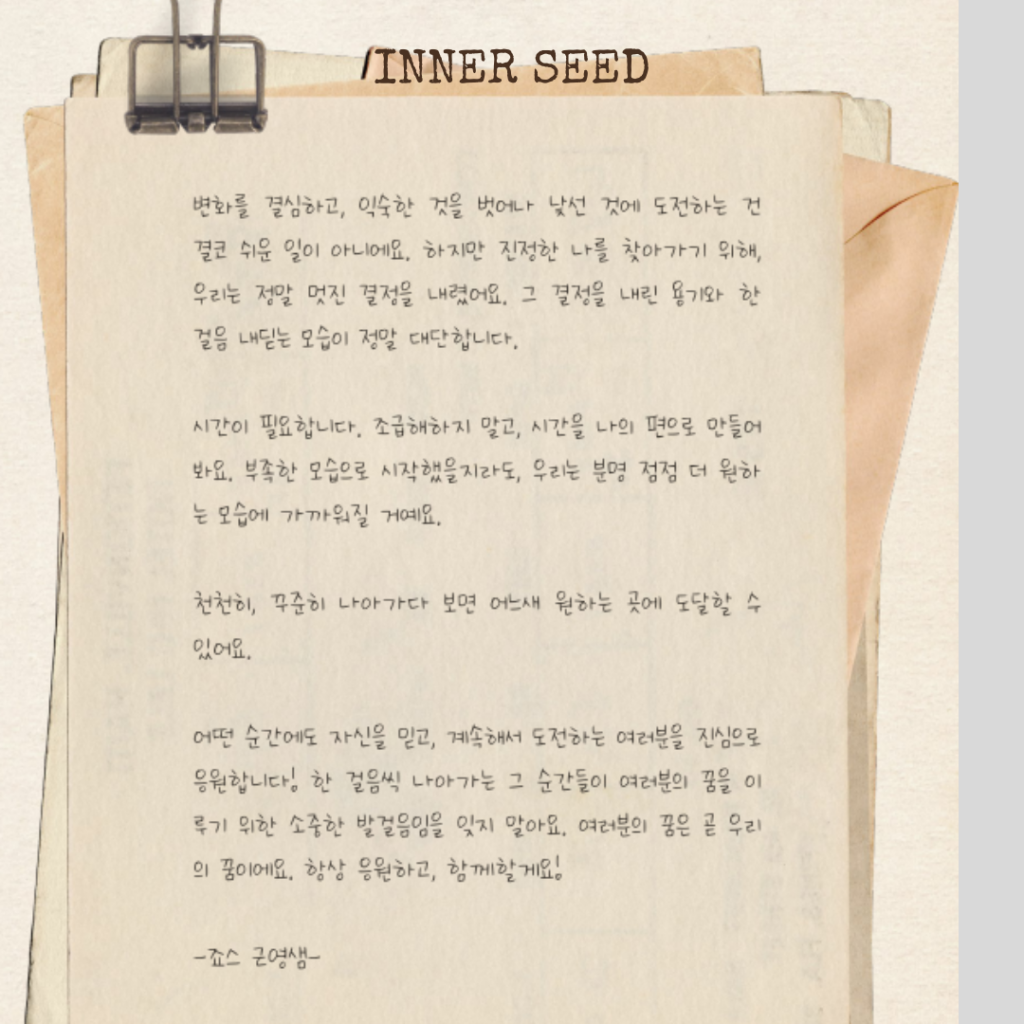 INNER SEED
변화를 결심하고, 익숙한 것을 벗어나 낯선 것에 도전하는 건
결코 쉬운 일이 아니에요. 하지만 진정한 나를 찾아가기 위해,
우리는 정말 멋진 결정을 내렸어요. 그 결정을 내린 용기와 한
걸음 내딛는 모습이 정말 대단합니다.
시간이 필요합니다. 조급해하지 말고, 시간을 나의 편으로 만들어
봐요. 부족한 모습으로 시작했을지라도, 우리는 분명 점점 더 원하
는 모습에 가까워질 거예요.
천천히, 꾸준히 나아가다 보면 어느새 원하는 곳에 도달할 수
있어요.
어떤 순간에도 자신을 믿고, 계속해서 도전하는 여러분을 진심으로
응원합니다! 한 걸음씩 나아가는 그 순간들이 여러분의 꿈을 이
루기 위한 소중한 발걸음임을 잊지 말아요. 여러분의 꿈은 곧 우리
의 꿈이에요. 항상 응원하고, 함께할게요!
-죠스 근영샘-